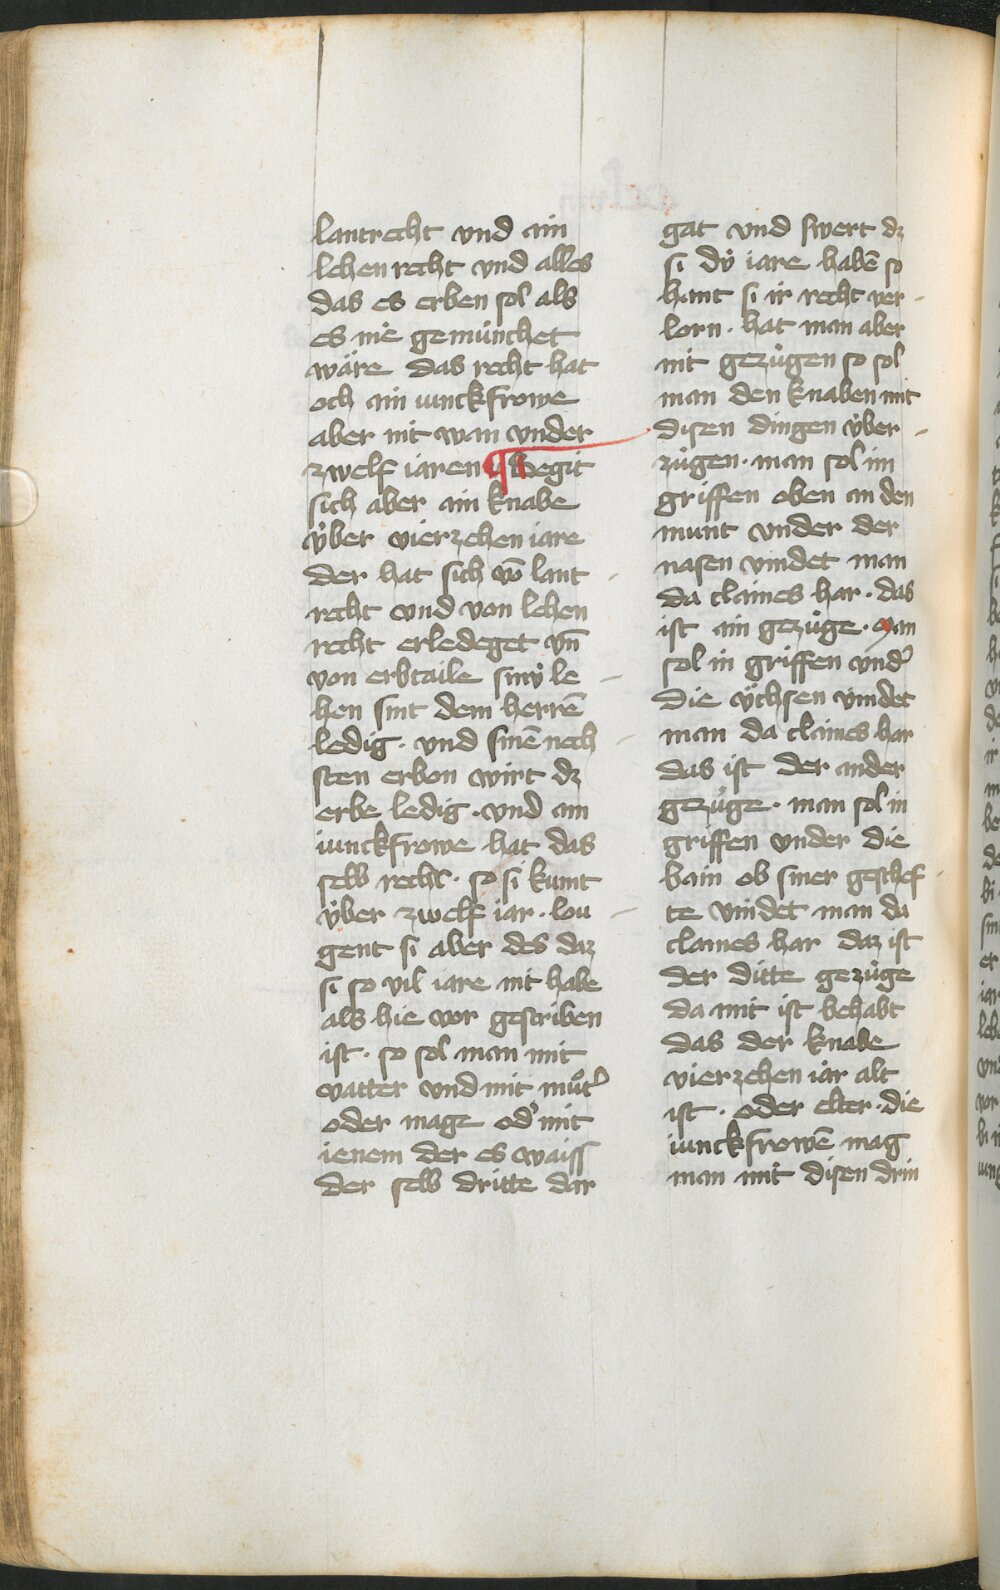 lantrecht vnd ain
lehen recht vnd alles
das es erben sol als
es nie gemünchet
wäre das recht hat
och ain iunckfrowe
aber nit wan vnder
zwelf iaren ¶ Begit
sich aber ain knabe
v̈ber vierzehen iare
der hat sich vō lant
recht vnd von lehen
recht erledeget vn̄
von erbtaile sinv̈ le
hen sint dem herrē
ledig · vnd sinē nech
sten erbon wirt dz
erbe ledig · vnd ain
iunckfrowe hat das
selb recht · so si kumt
v̈ber zwelf iar · lou
gent si aber des daz
si so vil iare nit habe
als hie vor gescriben
ist · so sol man mit
vatter vnd mit muͦt͛
oder mage od͛ mit
ienem der es waiss
der selb dritte dar
gat vnd swert dz
si dv̈ iare habē so
hant si ir recht ver-
lorn · hat man aber
nit gezügen so sol
man den knaben mit
disen dingen v̈ber-
zügen · man sol im
griffen oben an den
munt vnder der
nasen vindet man
da claines har · das
ist ain gezüge · Man
sol in griffen vnd͛
die v̈chsen vindet
man da claines har
das ist der ander
gezüge · man sol in
griffen vnder die
bain ob siner geschef-
te vindet man da
claines har daz ist
der ditte gezüge
da mit ist behabt
das der knabe
vierzehen iär alt
ist · oder elter · die
iunckfrowē mag
man mit disen drin